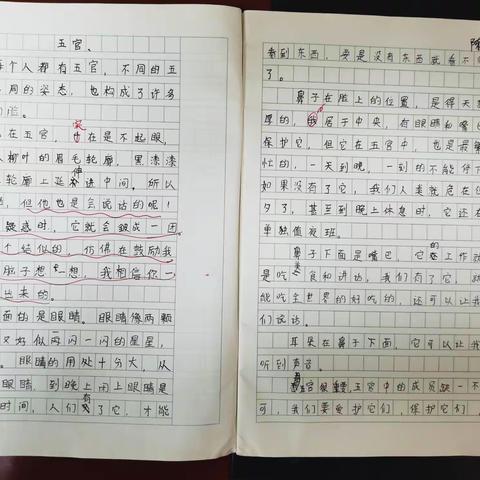 五官、
每个人都有五官，不同的五
同的姿态，也构成了许多
脸。
在五官，实在是不起眼，
柳叶的眉毛轮廓，黑漆漆
轮廓上延伸进中间。所以
，但他也是会说话的呢！
疑惑时，它就会皱成一团
个结似的，仿佛在鼓励我
脑子想一想，我相信你一
出来的。
面的是眼睛。眼睛像两颗
又好似一闪一闪的星星，
。眼睛的用处十分大，从
眼睛 到晚上闭上眼睛是
时间，人们有了它，才能
陈
看到东西，要是没有东西就看不
了。
鼻子在脸上的位置，是得天
厚的，居于中央，有眼睛和嘴
保护它，但它在五官中，也是最
忙的，一天到晚，一刻的不能停
如果没有了它，我们人类就危在
夕了，甚至到晚上休息时，它还在
单独值夜班。
鼻子下面是嘴巴，它的工作
是吃美食和讲话，我们有了它，就
能吃全世界的好吃的，还可以让我
们说话。
耳朵在鼻子下面，它可以让我
听到声音。
五官很重要，五官中的成员缺一不
可，我们要爱护它们，保护它们，